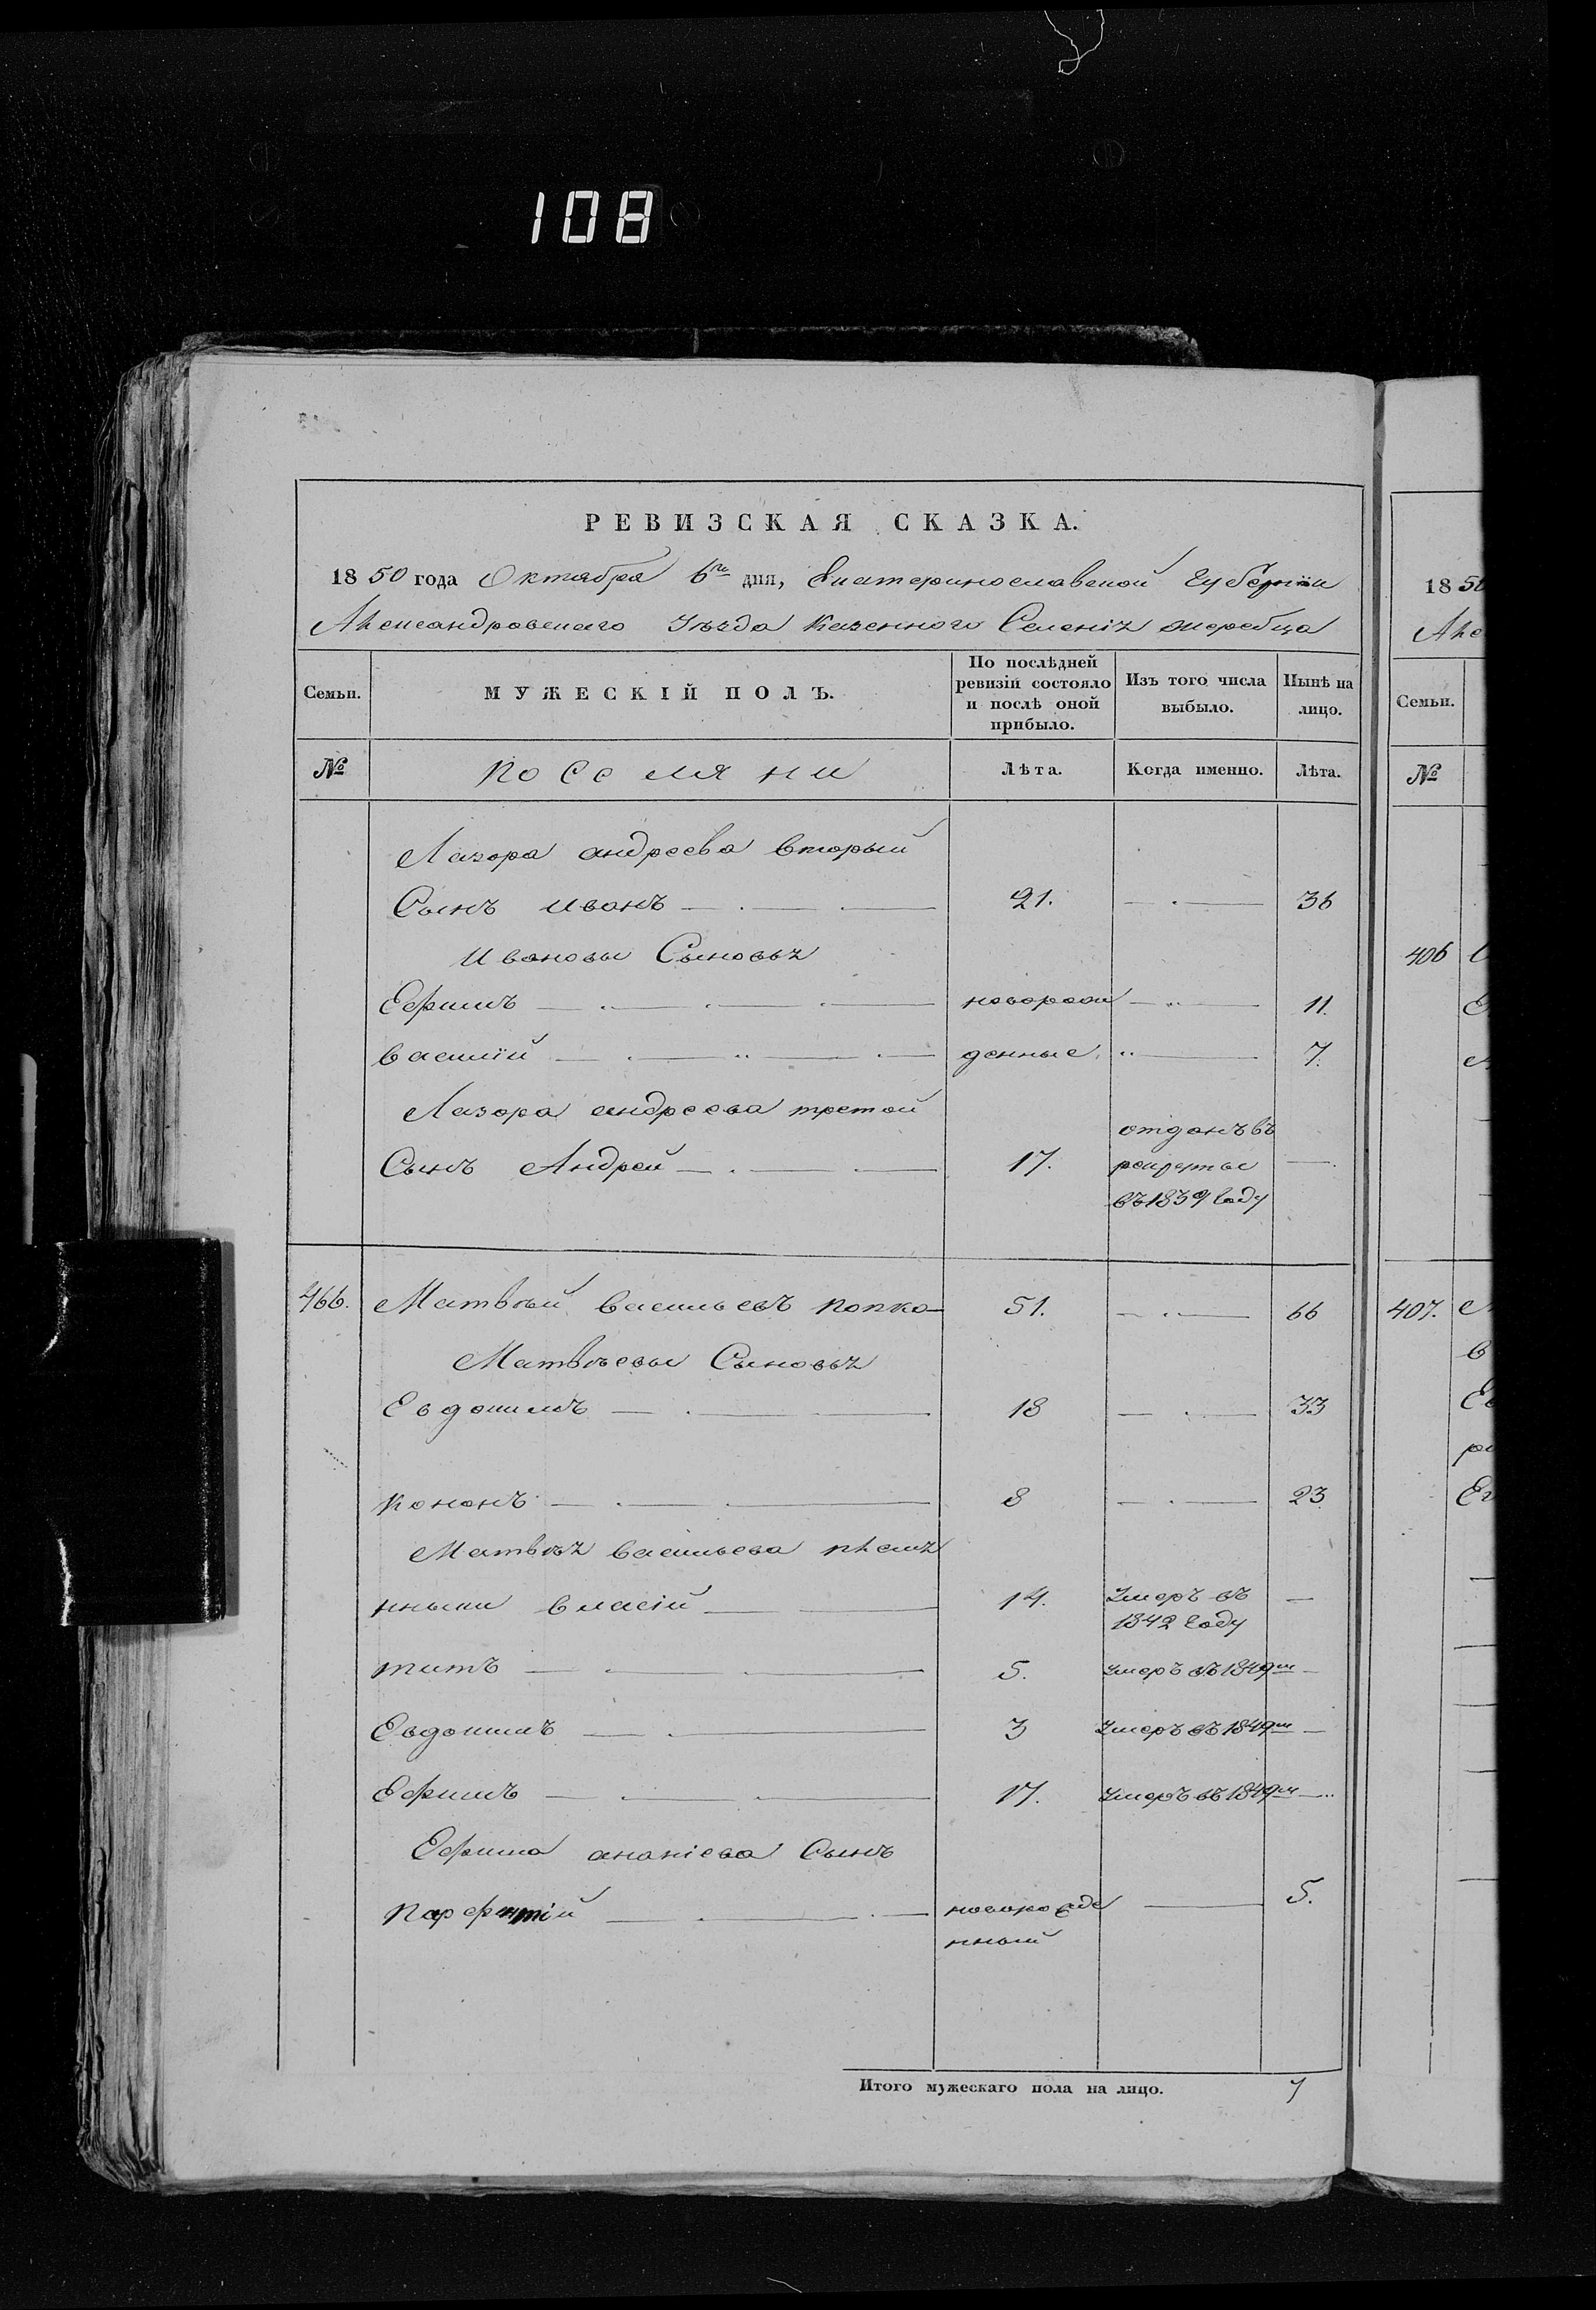 108
РЕВИЗСКАЯ СКАЗКА.
1850 года Октября 6го дня, Екатеринославской Губерніи
Александровскаго Уѣзда Казенного Селенія жеребца
Семьи.
МУЖЕСКІЙ ПОЛЪ.
По послѣдней ревизіи состояло и послѣ оной прибыло.
Изъ того числа выбыло.
Нынѣ на лицо.
№
поселяни
Лѣта.
Когда именно.
Лѣта.
Лазора андреева вторый
Сынъ иванъ 21. 36
ивановы Сыновья
Ефимъ новорож 11.
василій денные 7.
Лазора андреева третой
Сынъ Андрей 17. отданъ въ рекруты въ 1839 году
466. Матвѣй васильевъ попко 51. 66
Матвѣевы Сыновья
Евдокимъ 18 33
кононъ 8 23
Матвѣя васильева племя
нныки власій 14. умеръ въ 1842 году
титъ 5. умеръ въ 1849м
Евдокимъ 3 умеръ въ 1849м
Ефимъ 17. умеръ въ 1849м
Ефима ананіева Сынъ
парфентій новорожде 5.
нный
Итого мужескаго пола на лицо. 7
18 50
Але
Семьи.
№
406
407.